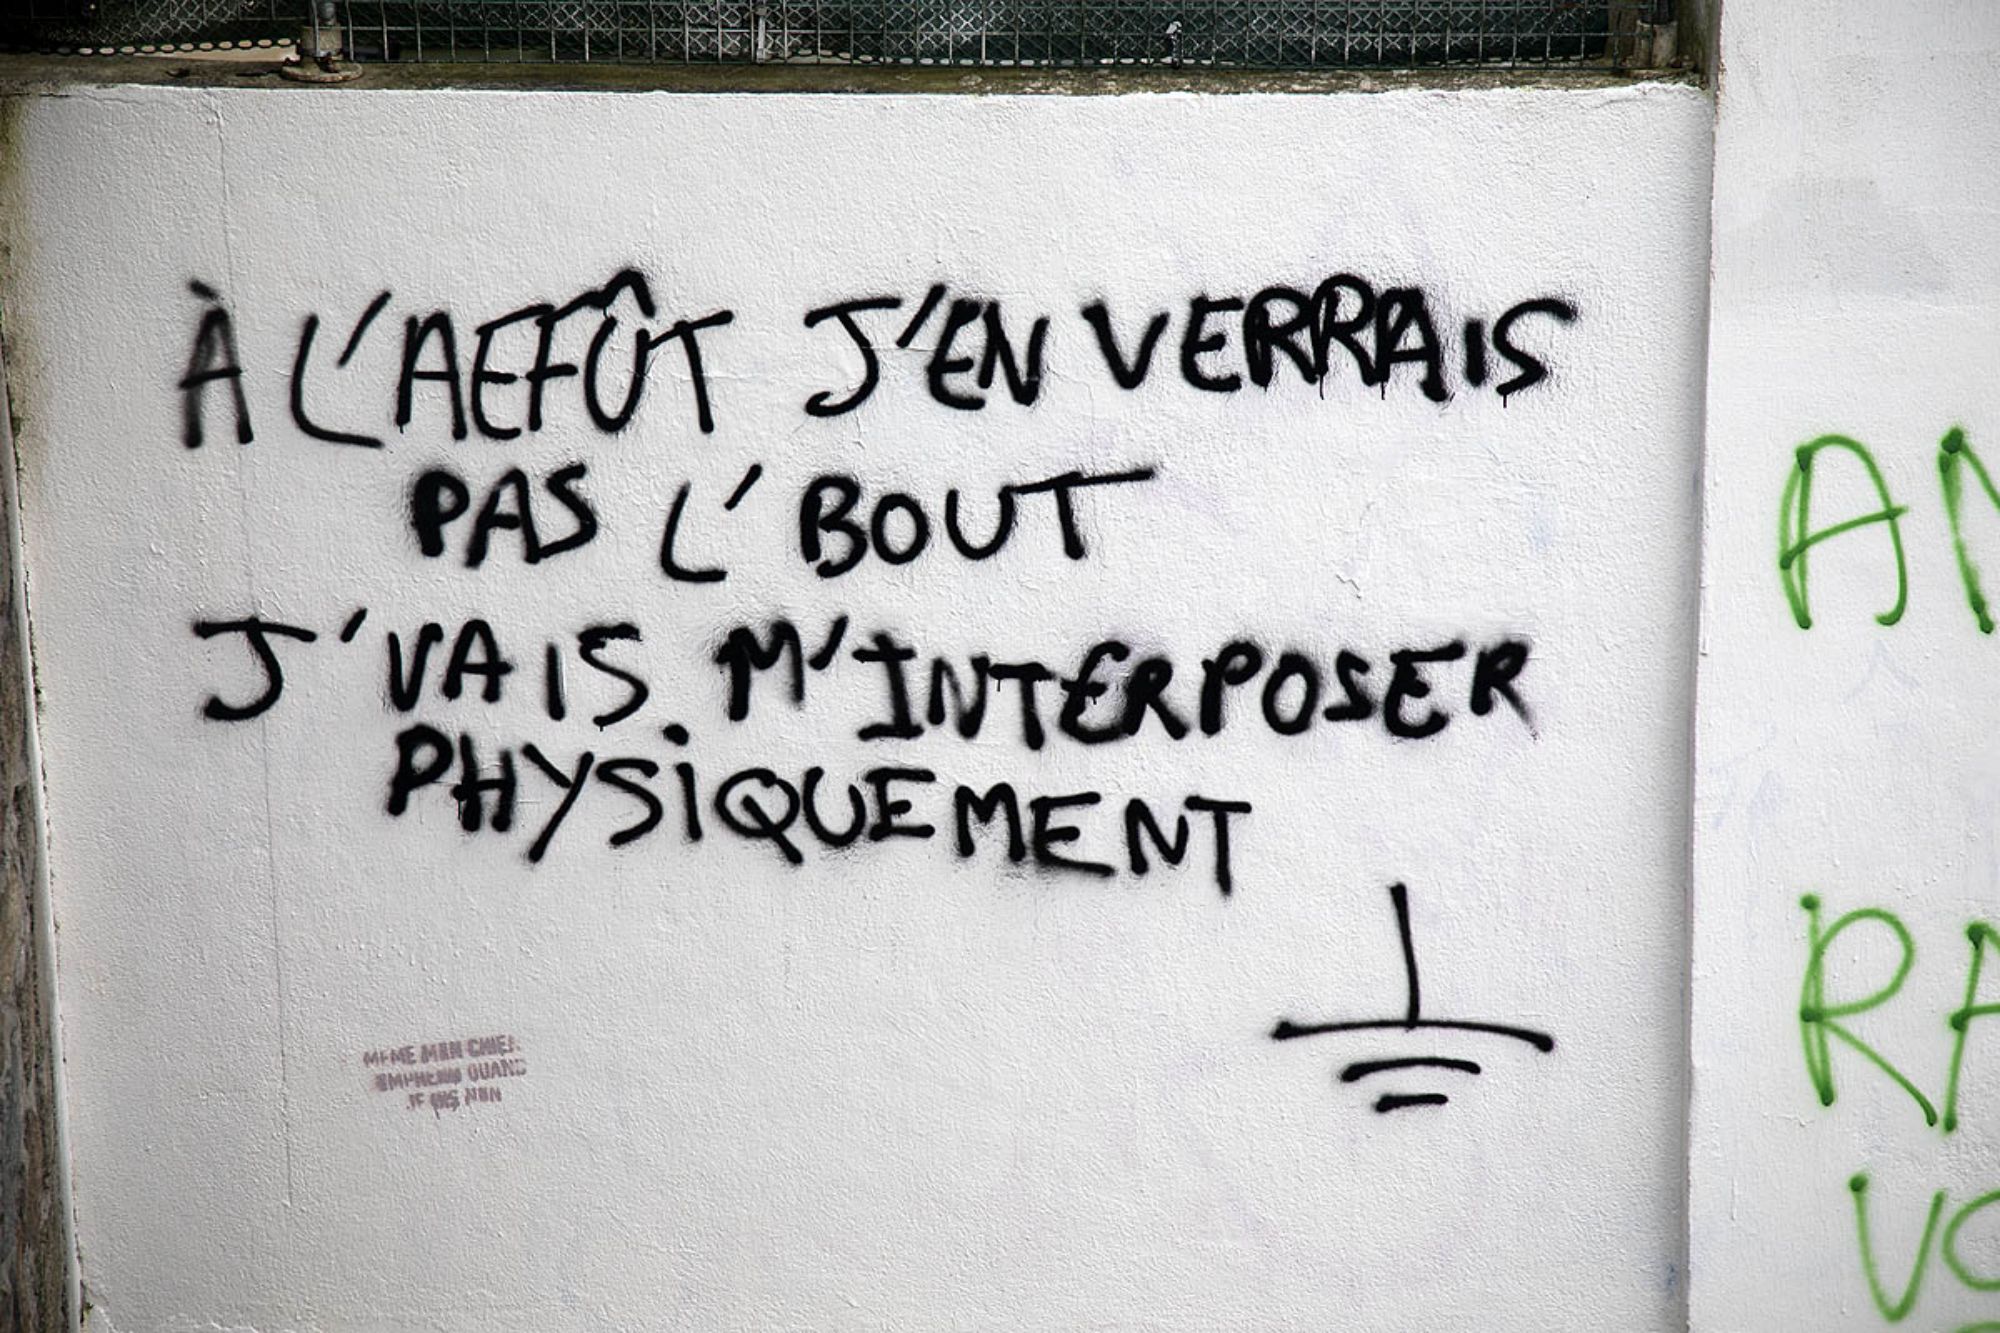 À L'AFFÛT J'EN VERRAIS
PAS L'BOUT
J'VAIS M'INTERPOSER
PHYSIQUEMENT
MÊME MON CHIEN
COMPREND QUAND
JE DIS NON
AN
RA
VO